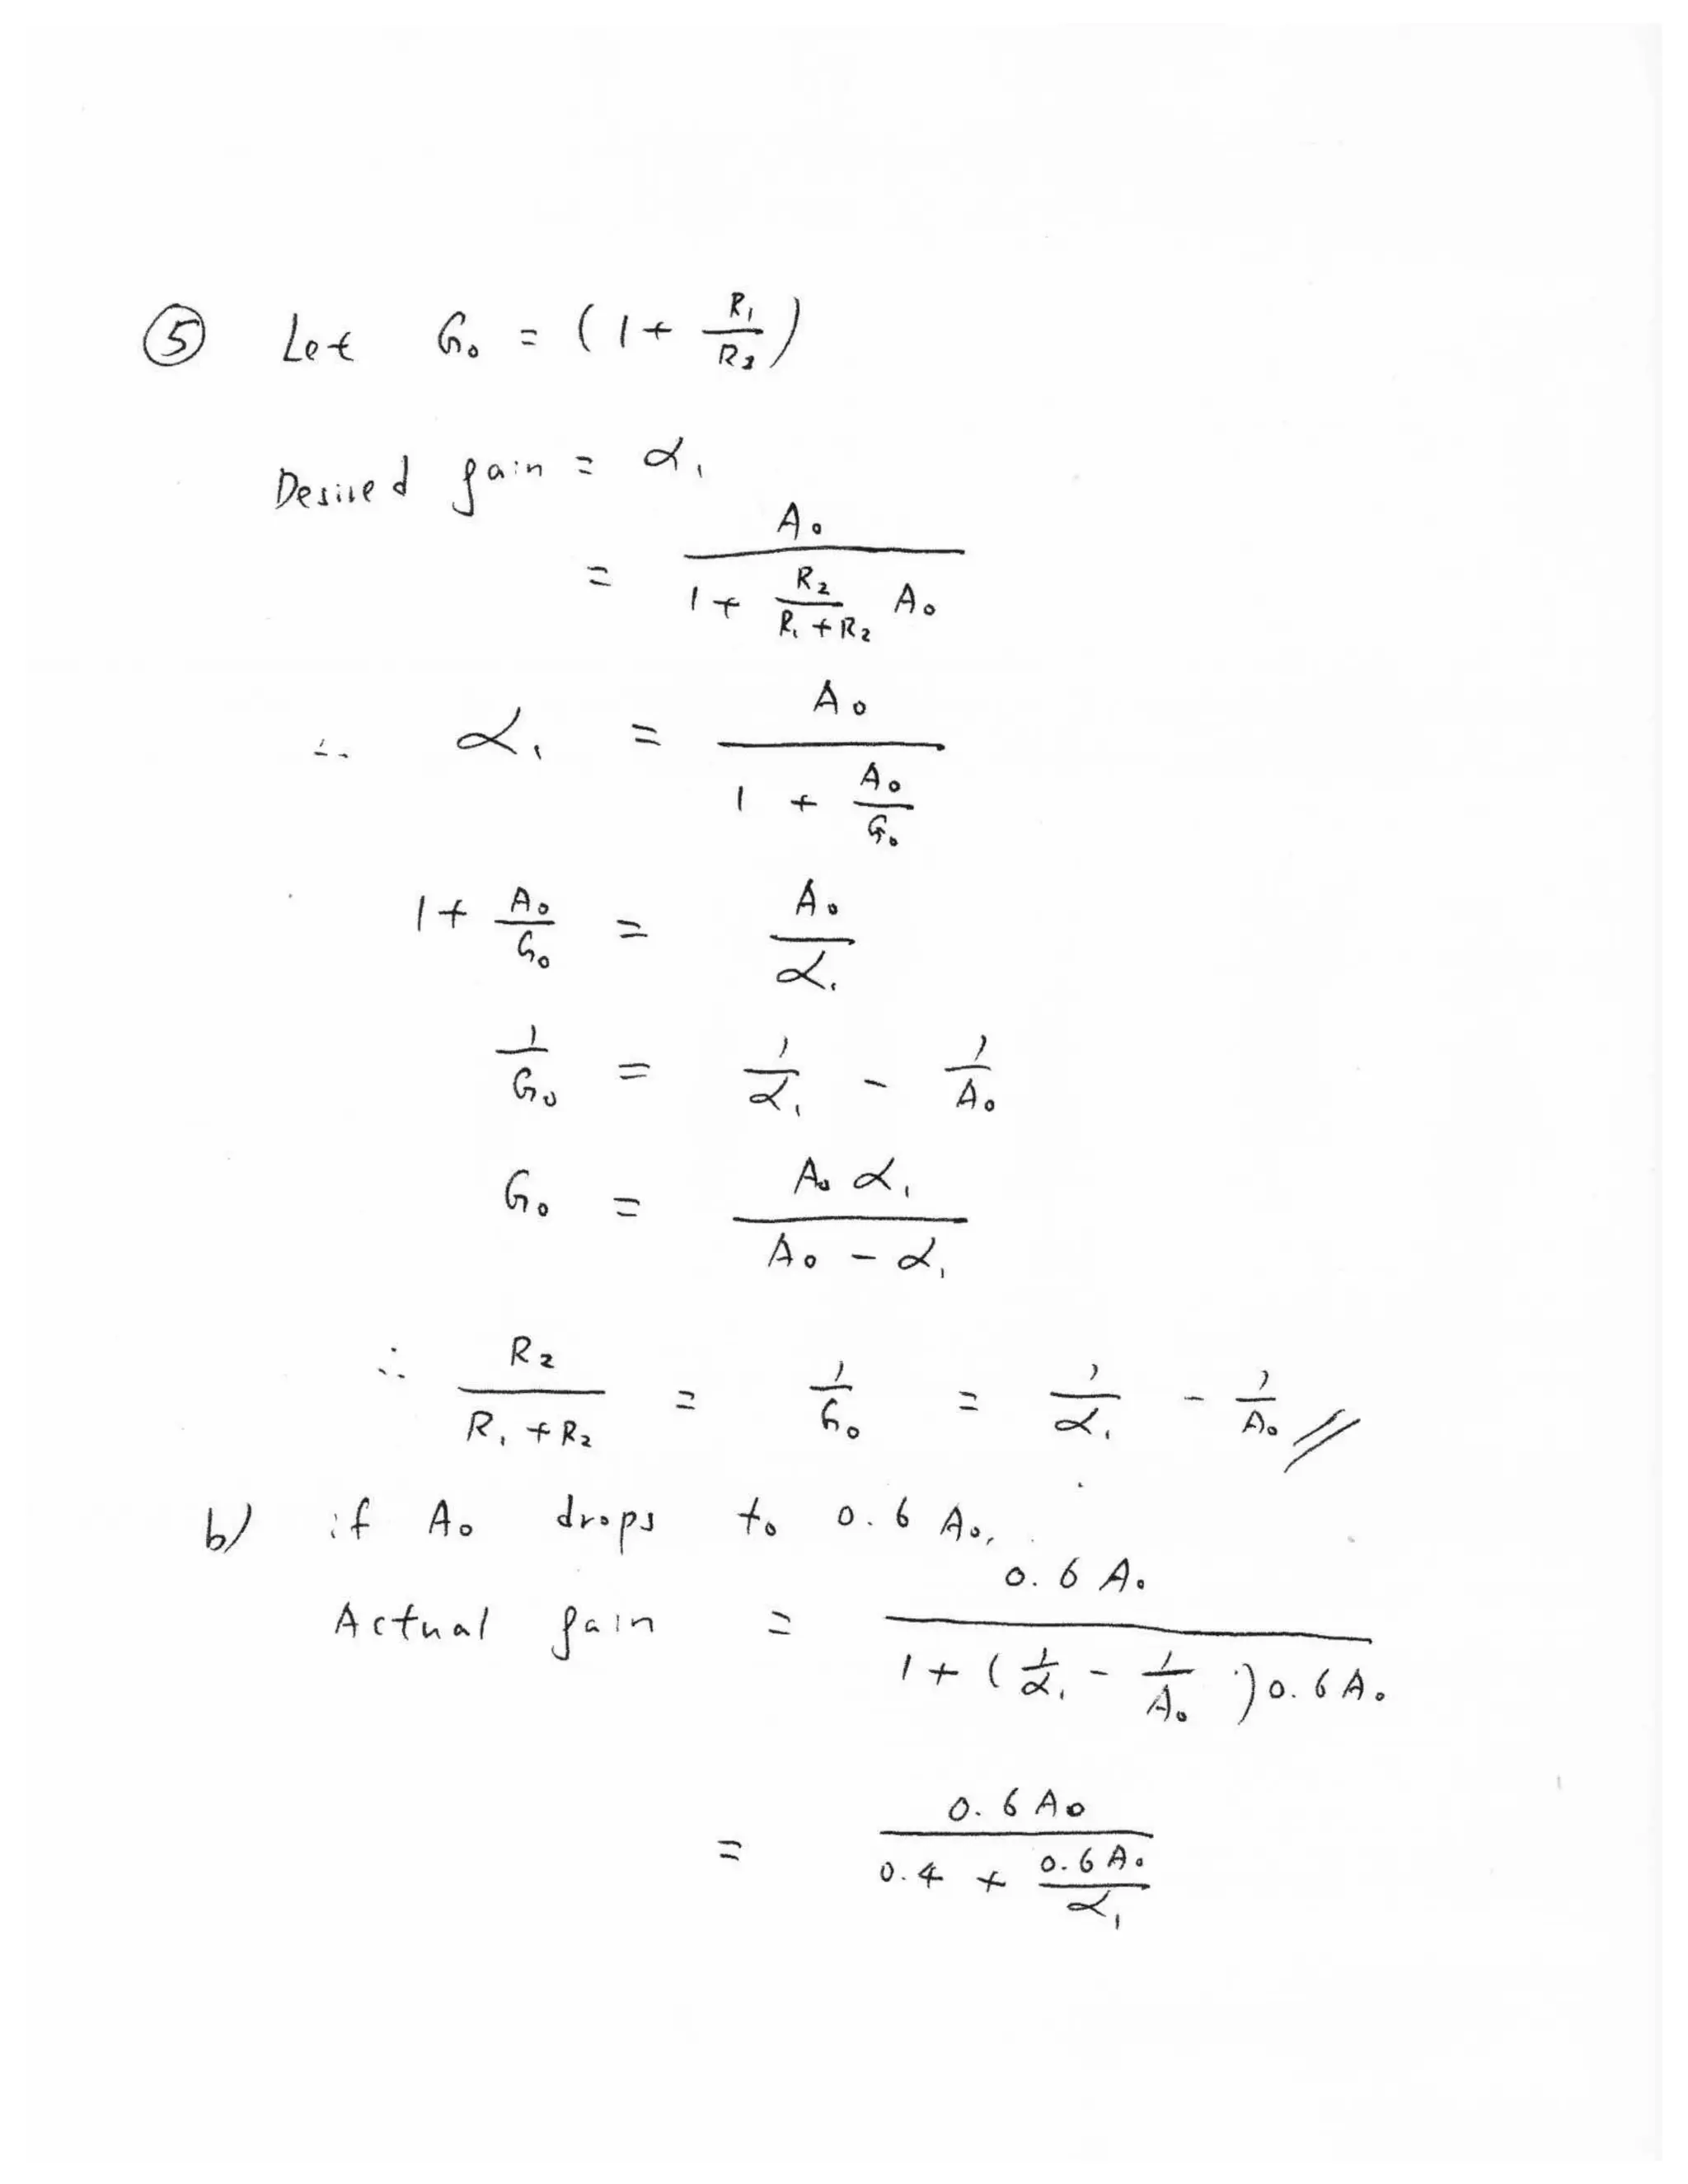 ⑤ Let G₀ = (1 + R₁/R₂)
Desired gain = α₁
= A₀ / (1 + (R₂/(R₁ + R₂)) A₀)
∴ α₁ = A₀ / (1 + A₀/G₀)
1 + A₀/G₀ = A₀/α₁
1/G₀ = 1/α₁ - 1/A₀
G₀ = A₀ α₁ / (A₀ - α₁)
∴ R₂/(R₁ + R₂) = 1/G₀ = 1/α₁ - 1/A₀ //
b) if A₀ drops to 0.6 A₀,
Actual gain = 0.6 A₀ / (1 + (1/α₁ - 1/A₀) 0.6 A₀)
= 0.6 A₀ / (0.4 + 0.6 A₀/α₁)